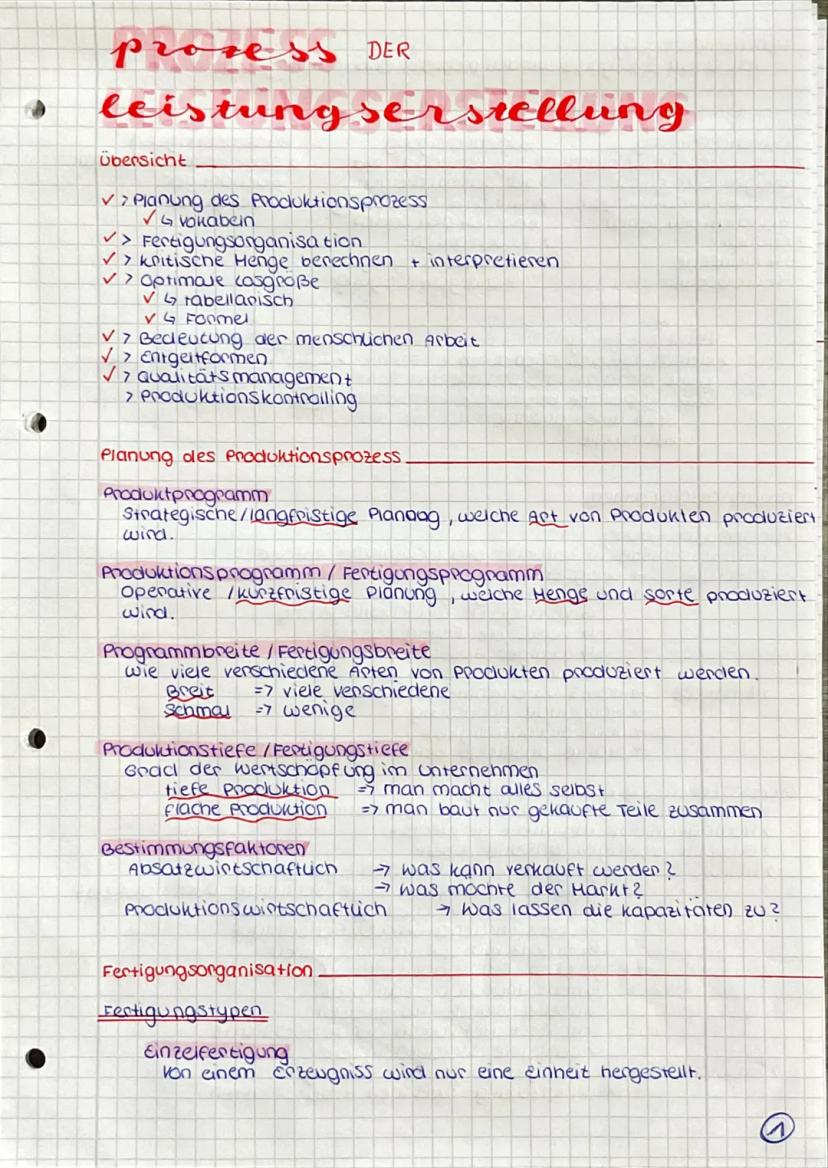 Prozess DER
Leistungserstellung
Übersicht
✓ > Planung des Produktionsprozess
✓ ↳ Vokabeln
✓ > Fertigungsorganisation
✓ > kritische Menge berechnen + interpretieren
✓ > Optimale Losgröße
✓ ↳ tabellarisch
✓ ↳ Formel
✓ > Bedeutung der menschlichen Arbeit
✓ > Entgeltformen
✓ > Qualitätsmanagement
> Produktionskontrolling
Planung des Produktionsprozess
Produktprogramm
Strategische/langfristige Planung, welche Art von Produkten produziert
wird.
Produktionsprogramm / Fertigungsprogramm
Operative /kurzfristige Planung, welche Menge und Sorte produziert
wird.
Programmbreite / Fertigungsbreite
Wie viele verschiedene Arten von Produkten produziert werden.
Breit => viele verschiedene
Schmal => wenige
Produktionstiefe / Fertigungstiefe
Grad der Wertschöpfung im Unternehmen
tiefe Produktion => man macht alles selbst
flache Produktion => man baut nur gekaufte Teile zusammen
Bestimmungsfaktoren
Absatzwirtschaftlich → was kann verkauft werden?
→ was möchte der Markt?
Produktionswirtschaftlich → Was lassen die Kapazitäten zu?
Fertigungsorganisation
Fertigungstypen
Einzelfertigung
Von einem Erzeugniss wird nur eine Einheit hergestellt.
1